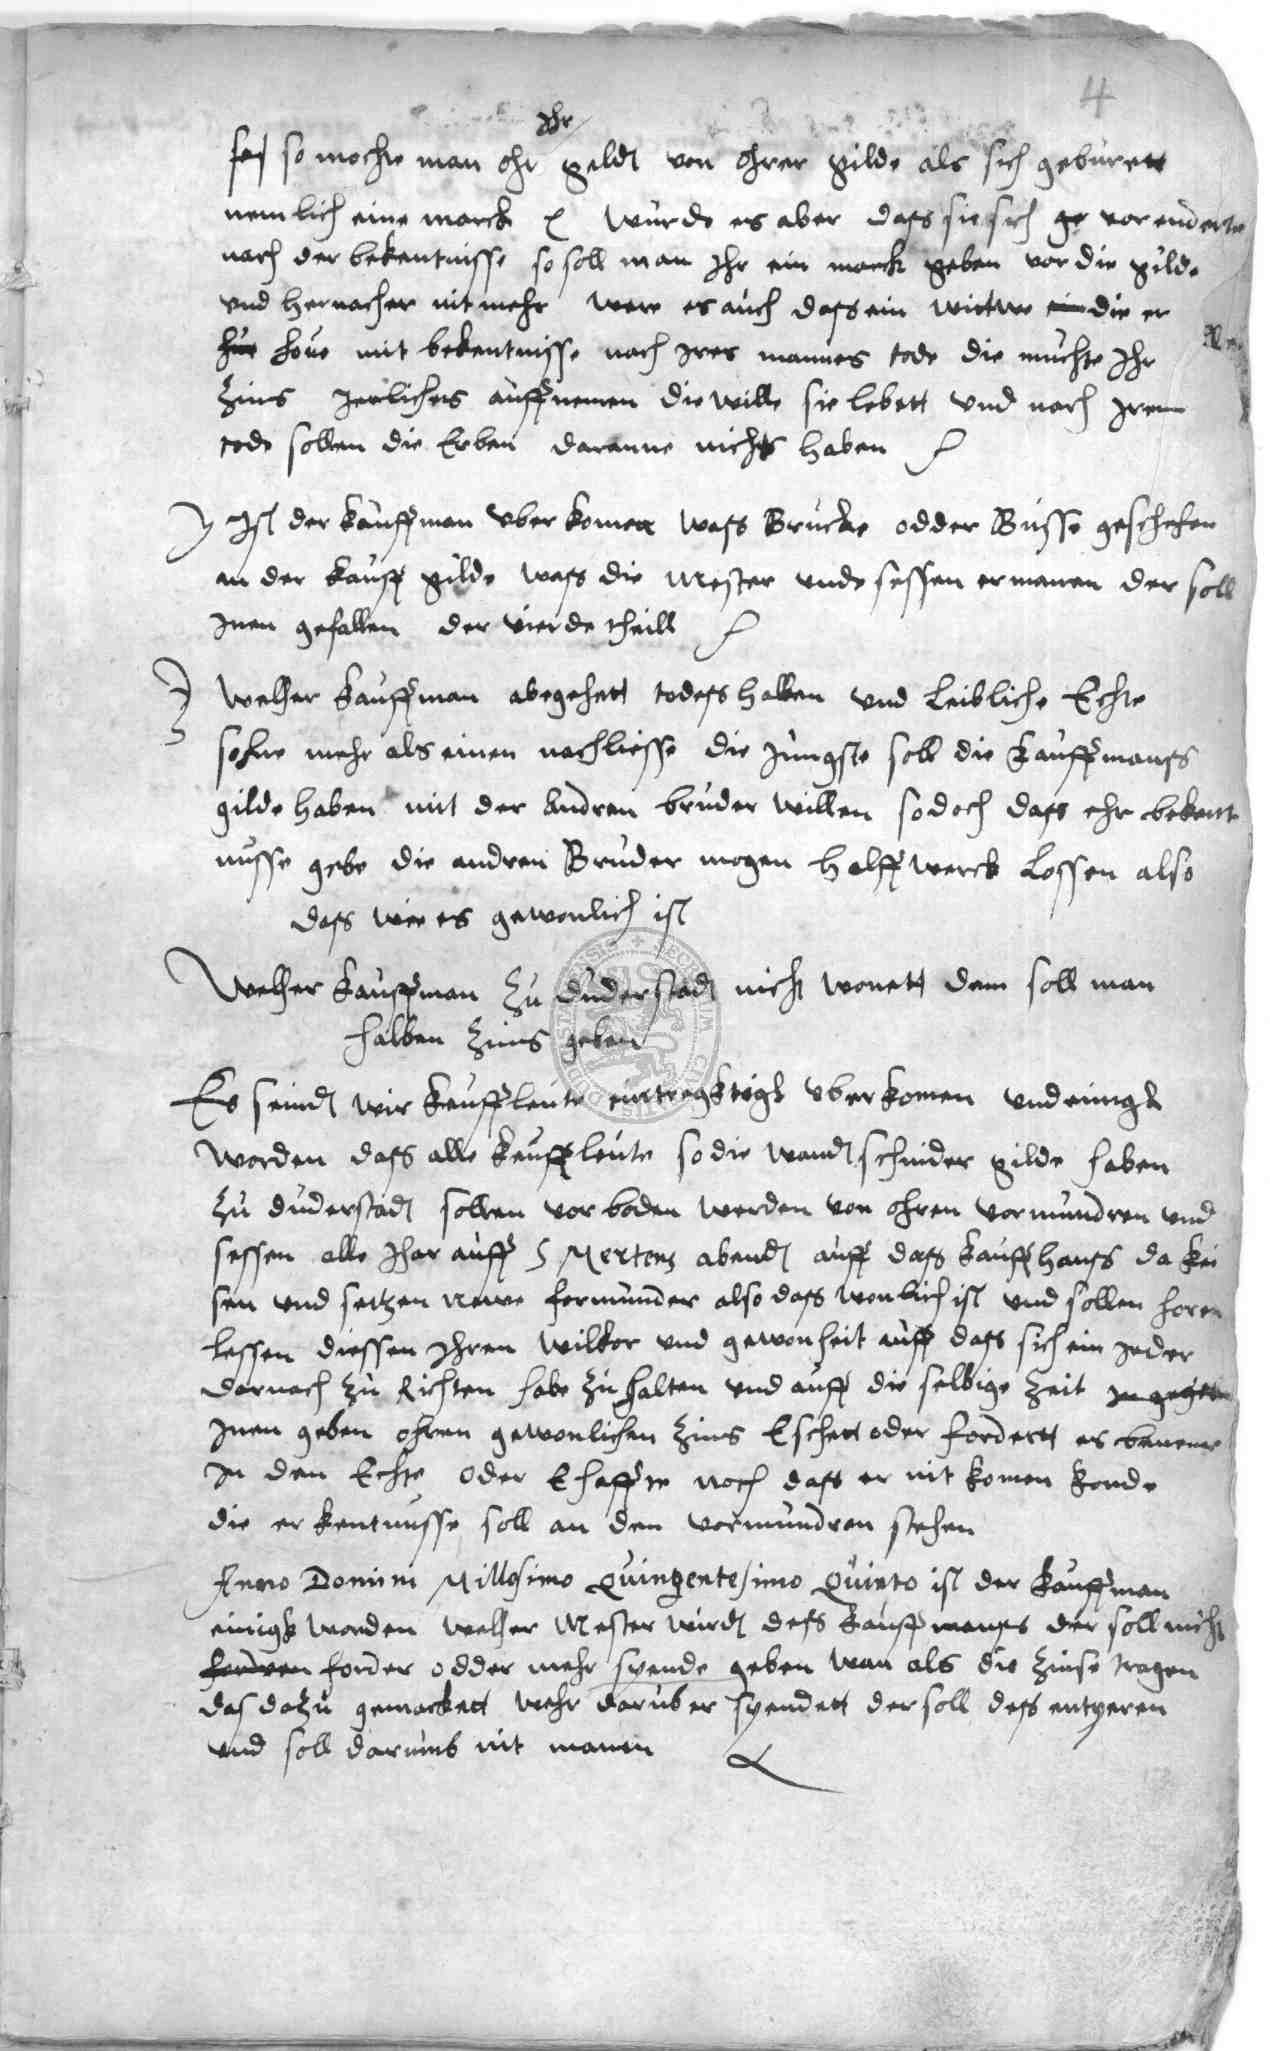 4
Ihr
so mochte man ohr geldt von ohrer gilde als sich geburett
nemlich eine marck wurde es aber dass sie sich ge vorenderte
nach der bekentnisse so soll man Ihr ein marck geben vor die gilde
und hernacher nit mehr were es auch dass ein wittwe ein die er
hove mit bekentnisse nach Ires mannes tode die muchte Ihr
Zins Jerliches auffnemen die wille sie lebett und nach Irem
tode sollen die Erben daranne nichts haben
Ist der kauffman uberkomen wass Brucke odder Busse geschehen
an der kauff gilde wass die Mester unde sessen ermanen der soll
Inen gefallen der vierde theill
Welher kauffman abegehett todess halben und Leibliche Echte
sohne mehr als einen nachliesse die Jungste soll die kauffmanss
gilde haben mit der Andren bruder willen so doch dass ehr bekent
nusse gebe die andren Bruder mogen halffwerck Lossen also
dass wie es gewonlich ist
Welher kauffman Zu Duderstadt nicht wonett dem soll man
halben Zins geben
Es seindt wir kauffleute eintregktigk uberkomen und einigk
worden dass alle kauffleute so die wandtschnider gilde haben
Zu duderstadt sollen vorboden werden von ohren vormundren und
sessen alle Ihar auff S Mertens abendt auff dass kauffhauss da kei
sen und setzen newe formunder also dass wonlich ist und sollen horen
lessen diessen Ihren wilkor und gewonheit auff dass sich ein jeder
darnach zu Richten habe zu halten und auff die selbige Zeit
Inen geben ohren gewonlichen Zins Eschett oder fordertt es beneme
In den Echte oder Ehaffte noch dass er nit komen konde
die erkentnusse soll an den vormundren stehen
Anno Domini Millesimo Quingentesimo Quinto ist der kauffman
einigk worden welher Mester wirdt dess kauffmanss der soll nicht
forder odder mehr spende geben wan als die Zinse tragen
das dazu gemackett mehr daruber spendett der soll dess entperen
und soll darumb nit manen